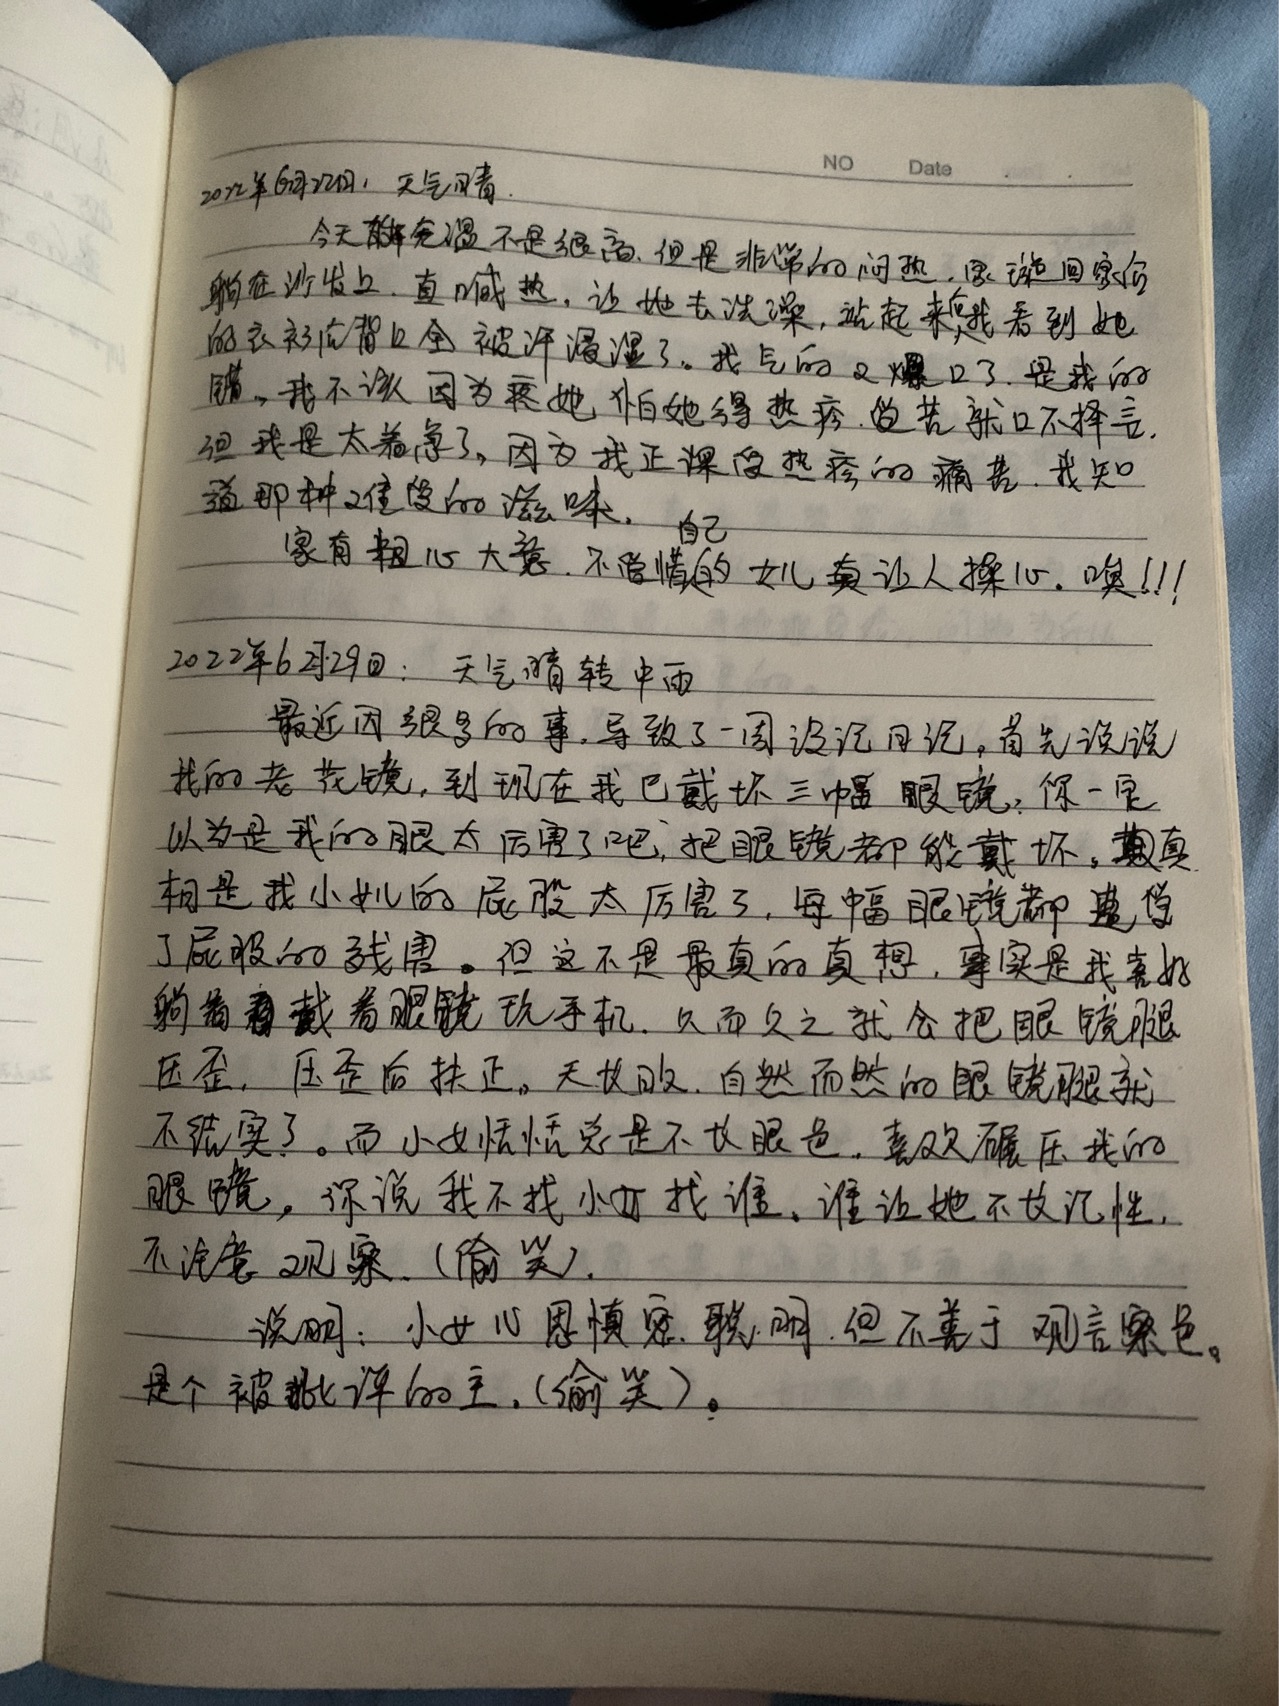 NO Date
2022年6月22日：天气晴.
今天气温不是很高.但是非常的闷热.回家后
躺在沙发上.直喊热.让她去洗澡,站起来我看到她
的衣衫后背已全被汗浸湿了。我气的又爆口了.是我的
错。我不该因为疼她怕她得热疹.受苦就口不择言.
但我是太着急了。因为我正深受热疹的痛苦.我知
道那种难受的滋味.
家有粗心大意.不爱惜自己的女儿真让人操心.唉!!!
2022年6月29日:天气晴转中雨
最近因很多的事.导致了一周没记日记。首先说说
我的老花镜,到现在我已戴坏三幅眼镜,你一定
以为是我的眼太厉害了吧,把眼镜都能戴坏。真
相是我小女儿的屁股太厉害了,每幅眼镜都遭受
了屁股的残害。但这不是最真的真想.事实是我喜好
躺着戴着眼镜玩手机.久而久之就会把眼镜腿
压歪.压歪后扶正。天长日久.自然而然的眼镜腿就
不结实了。而小女恬恬总是不长眼色.喜欢碾压我的
眼镜。你说我不找小女找谁。谁让她不长记性.
不注意观察.(偷笑).
说明:小女心思慎密.聪明.但不善于观言察色。
是个被批评的主.(偷笑)。